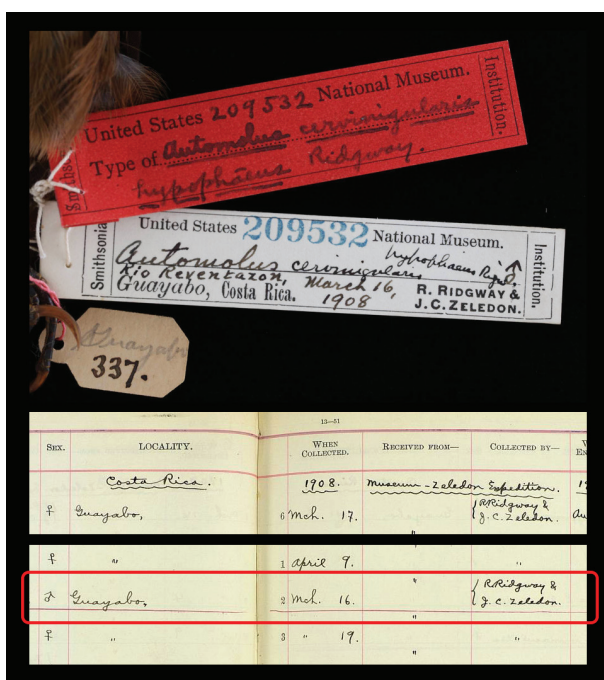 United States 209532 National Museum.
Type of Automolus cervinigularis
hypophaeus Ridgway.
Smiths
Institution.
United States 209532 National Museum.
Automolus cervinigularis hypophaeus Ridgw. ↑
Rio Reventazon, March 16,
Guayabo, Costa Rica. 1908
R. RIDGWAY &
J.C. ZELEDON.
Smithsonian
Institution.
Guayabo
337.
13—51
SEX. LOCALITY. WHEN COLLECTED. RECEIVED FROM— COLLECTED BY—
Costa Rica. 1908. Museum-Zeledon Expedition.
♀ Guayabo, 6 Mch. 17. " { R Ridgway & J. C. Zeledon.
♀ " 1 April 9. " "
♂ Guayabo, 2 Mch. 16. " { R Ridgway & J. C. Zeledon.
♀ " 3 " 19. " "